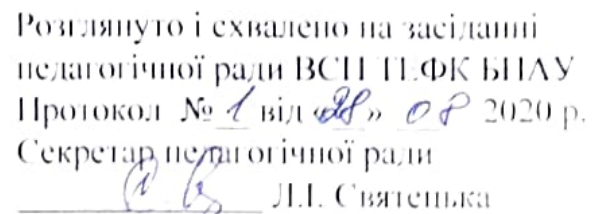 Розглянуто і схвалено на засіданні
педагогічної ради ВСП ТЕФК БНАУ
Протокол № 1 від «28» 08 2020 р.
Секретар педагогічної ради
Л.І. Святенька